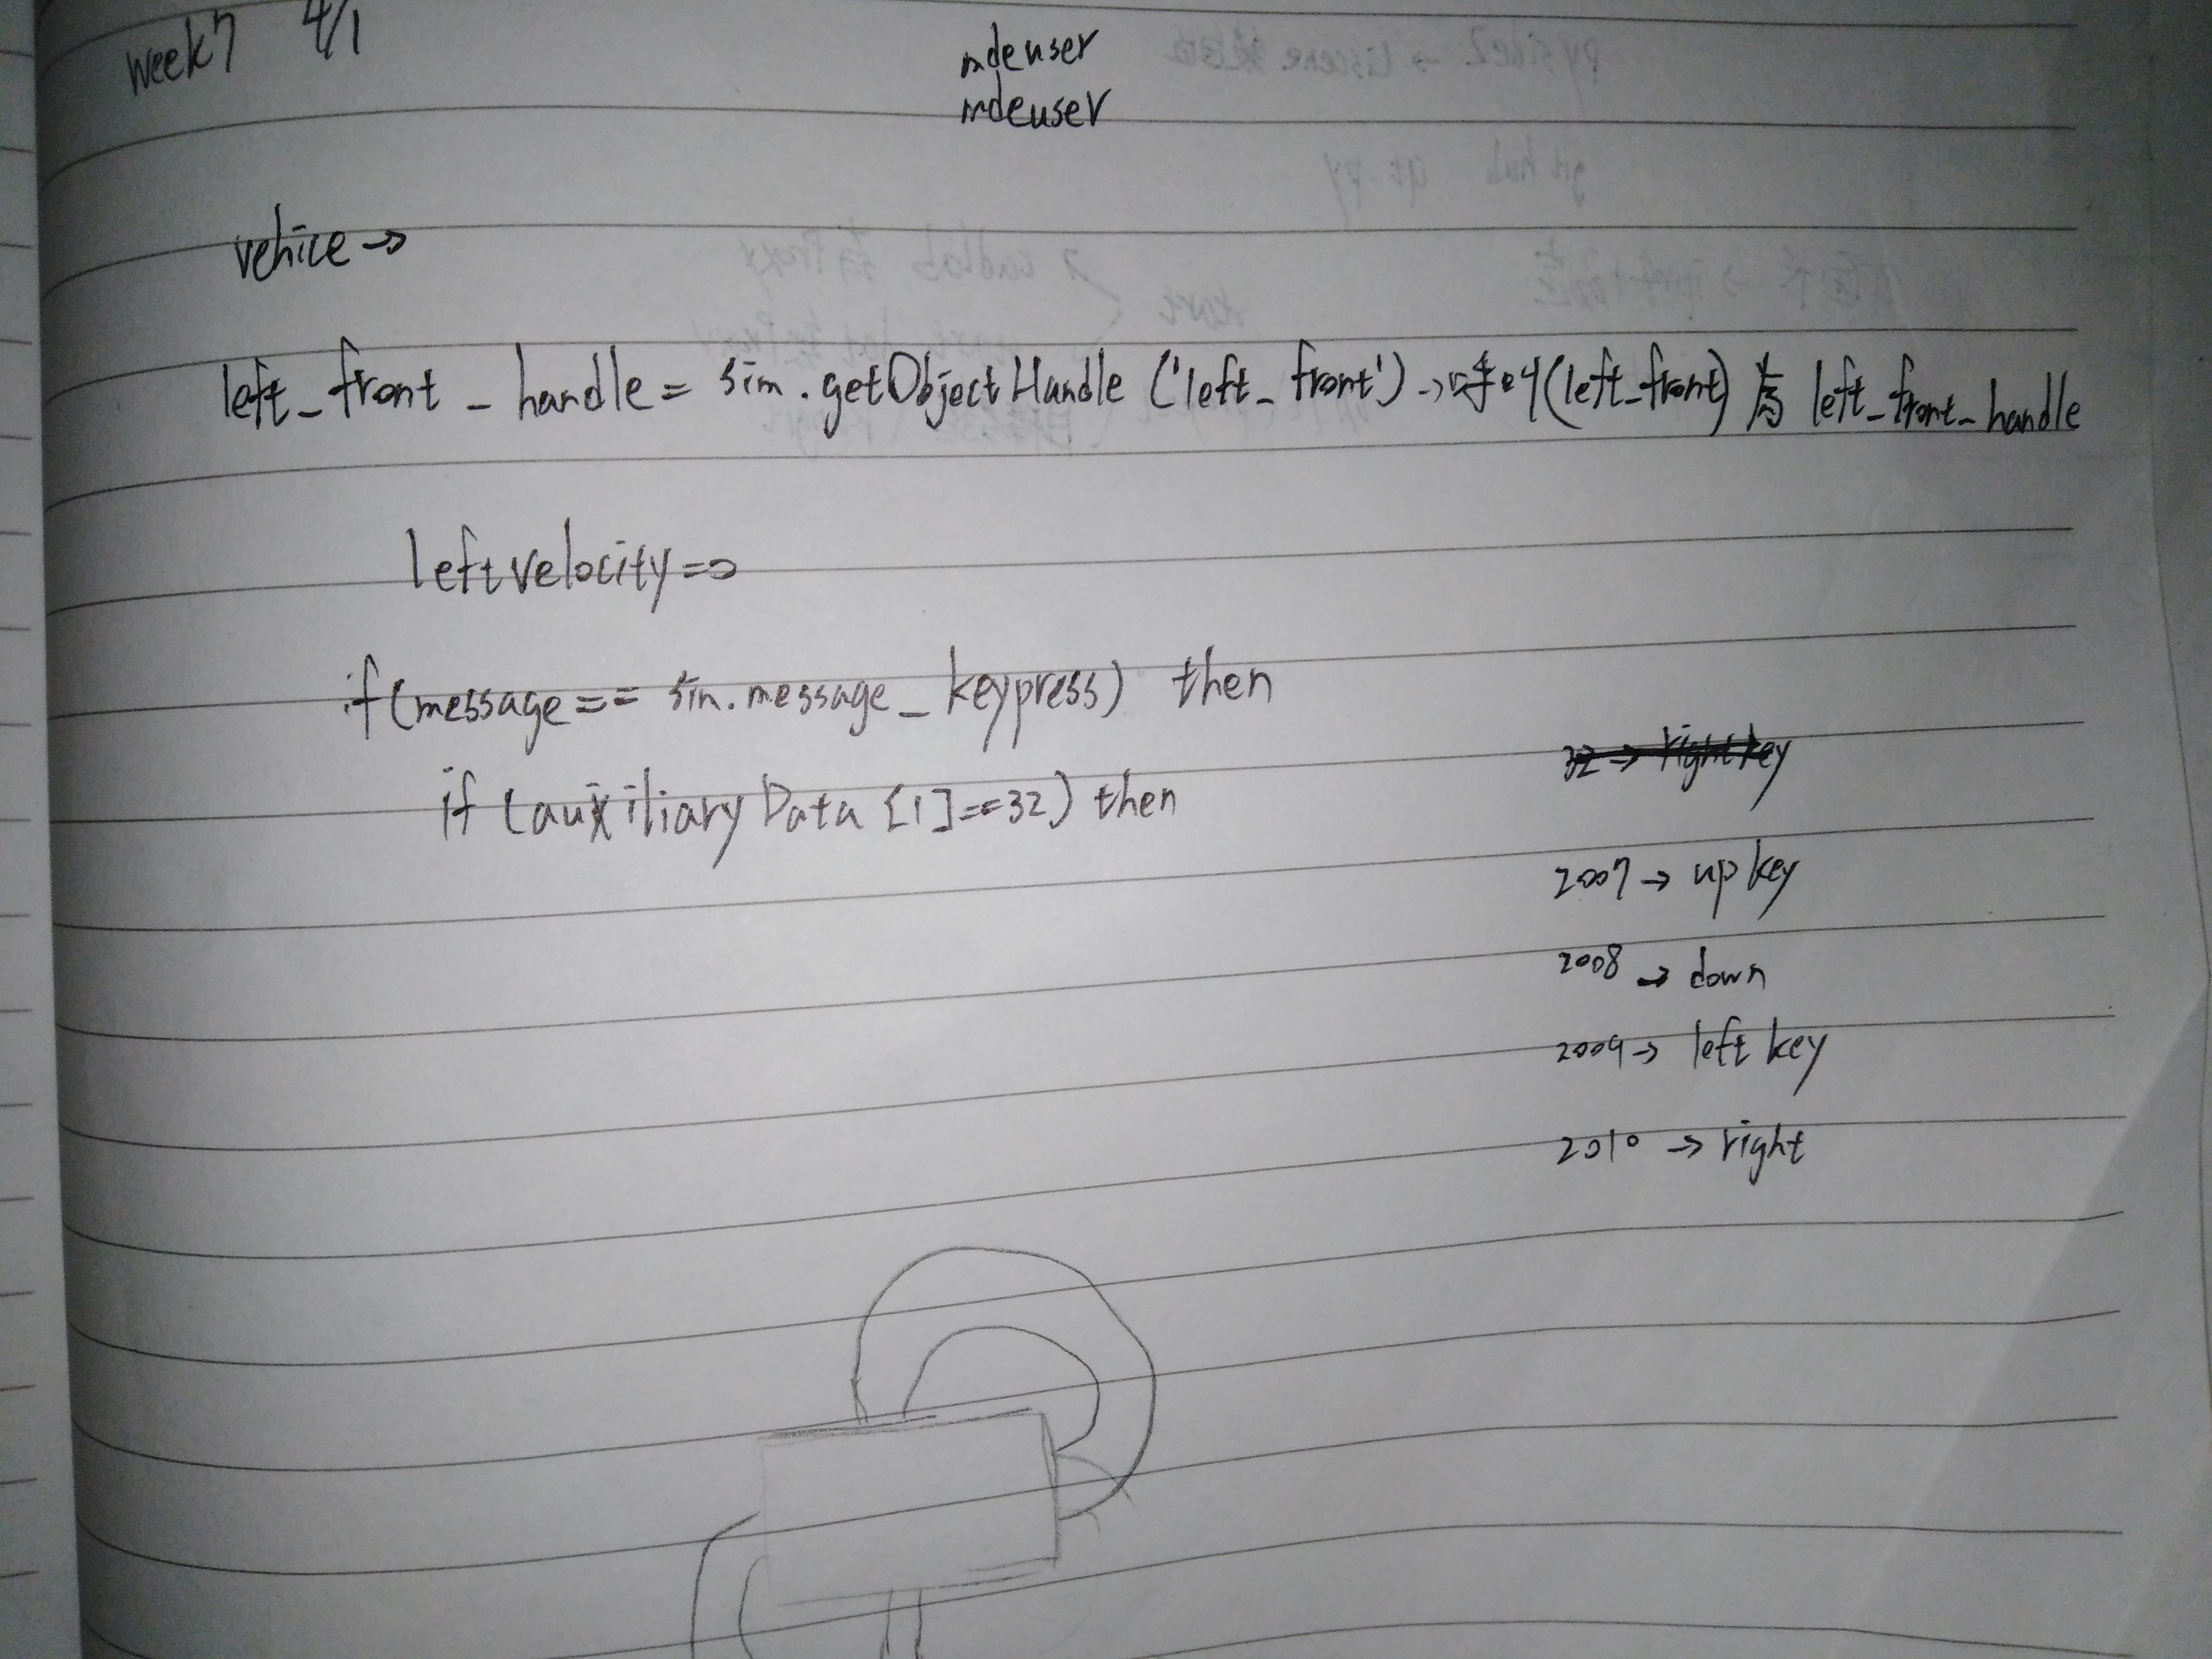 week7 4/1
mdeuser
mdeuser
vehice →
left_front_handle = sim.getObjectHandle ('left_front') → 呼叫(left_front) 為 left_front_handle
leftvelocity =>
if (message == sim.message_keypress) then
if (auxiliaryData [1]==32) then
32 → right key
2007 → up key
2008 → down
2009 → left key
2010 → right